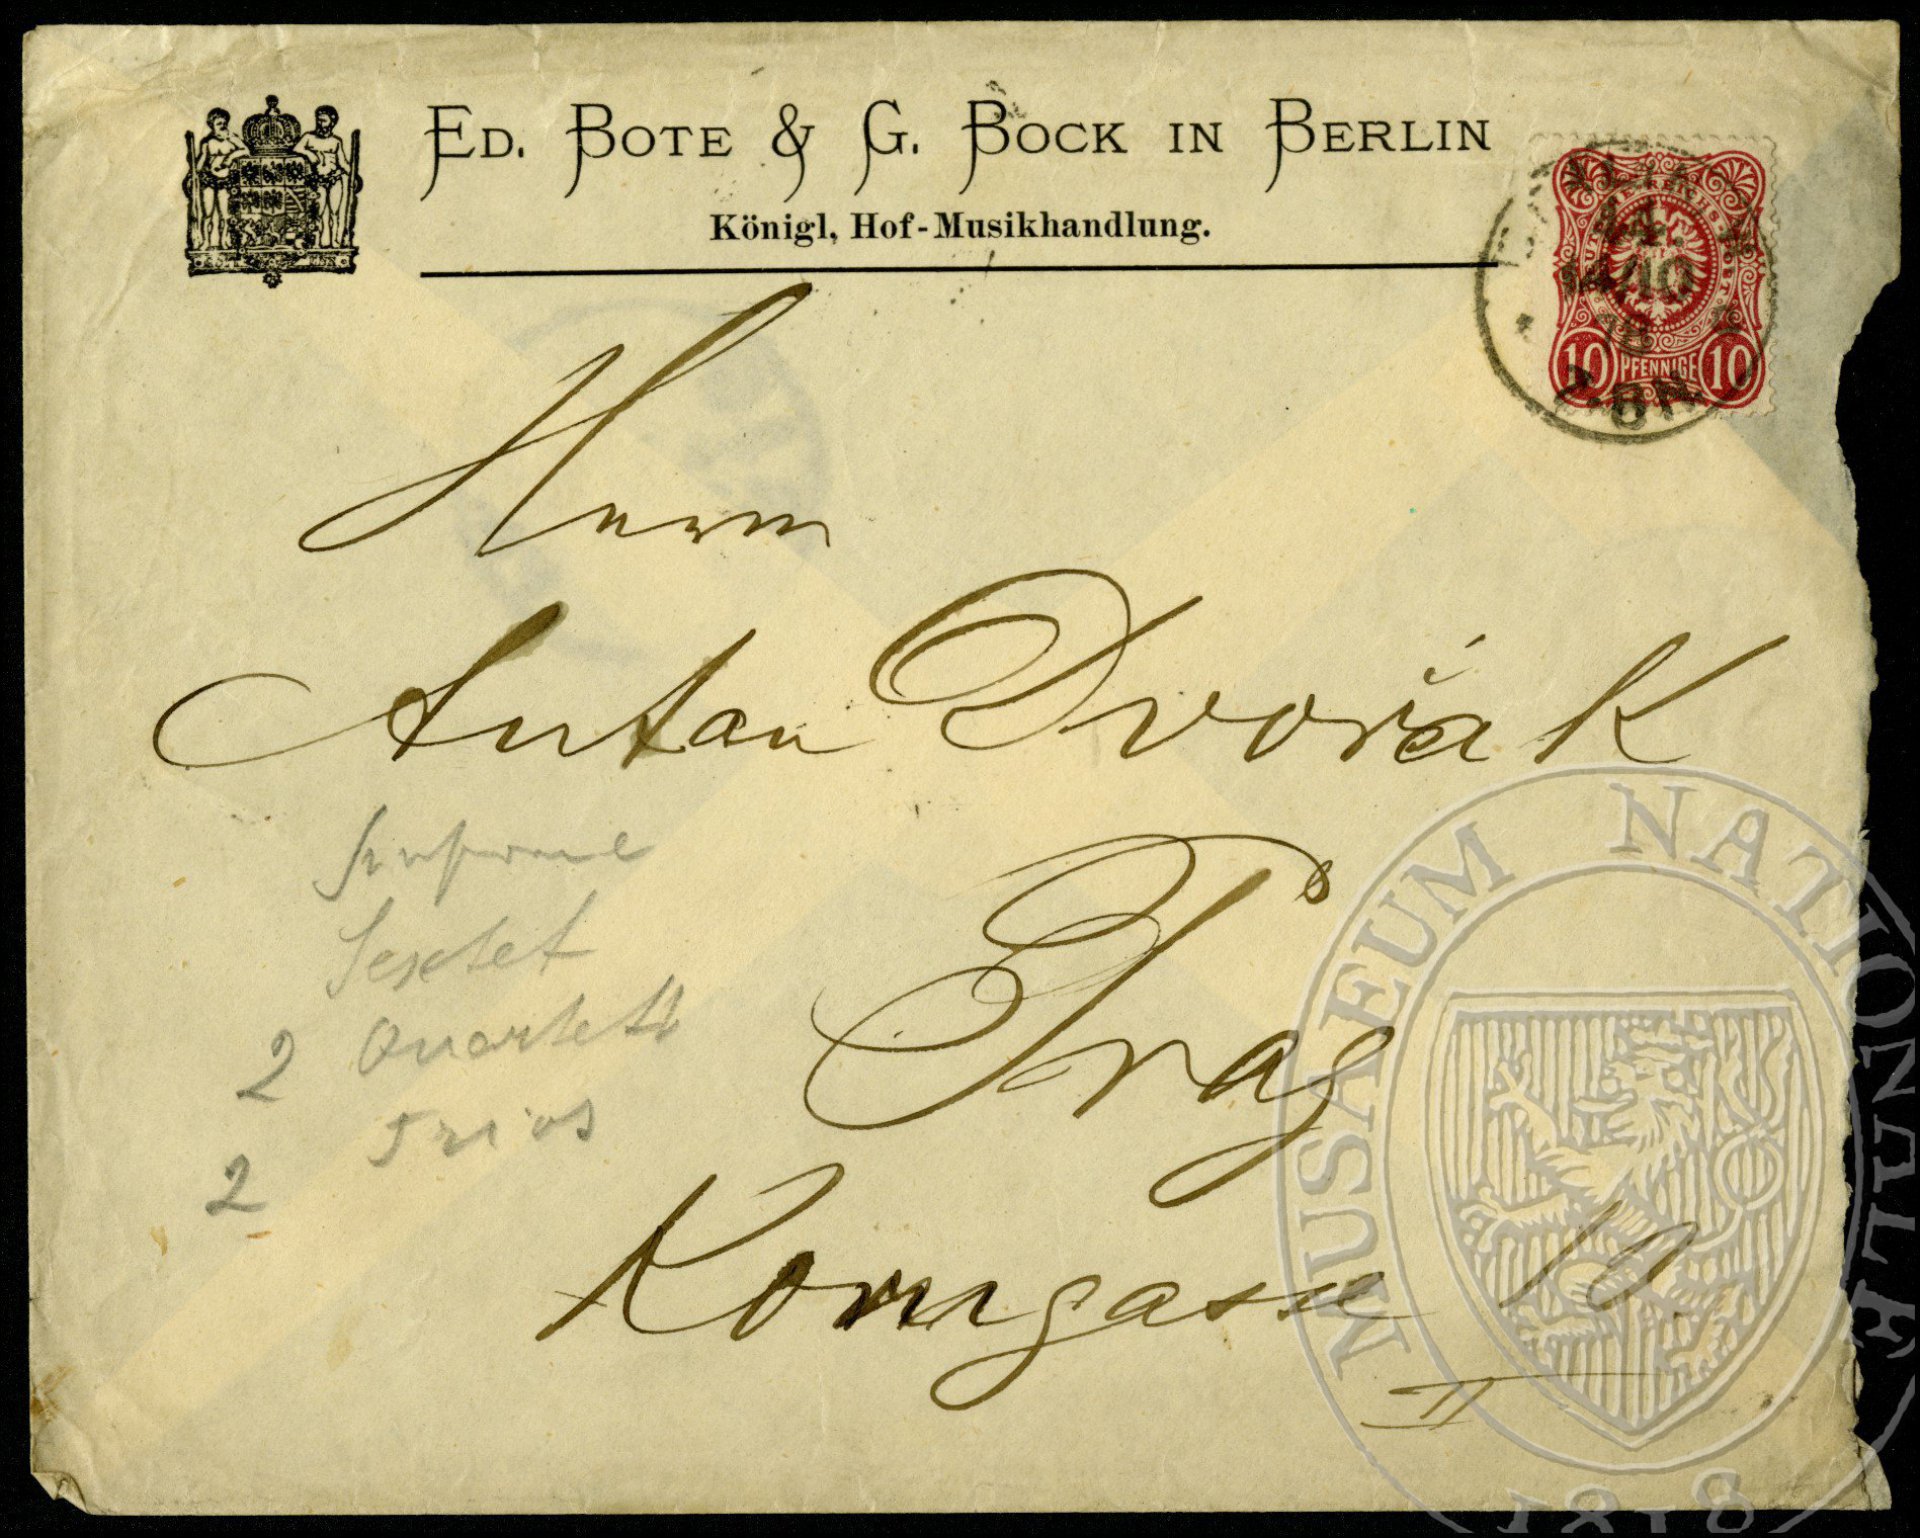 ED. BOTE & G. BOCK IN BERLIN
Königl. Hof-Musikhandlung.
14/10
78
10 PFENNIGE 10
Herrn
Anton Dvořák
Prag
Korngasse 10
II
Sextet
2 Quartett
2 Trios
MUSAEUM NATIONALE
1818